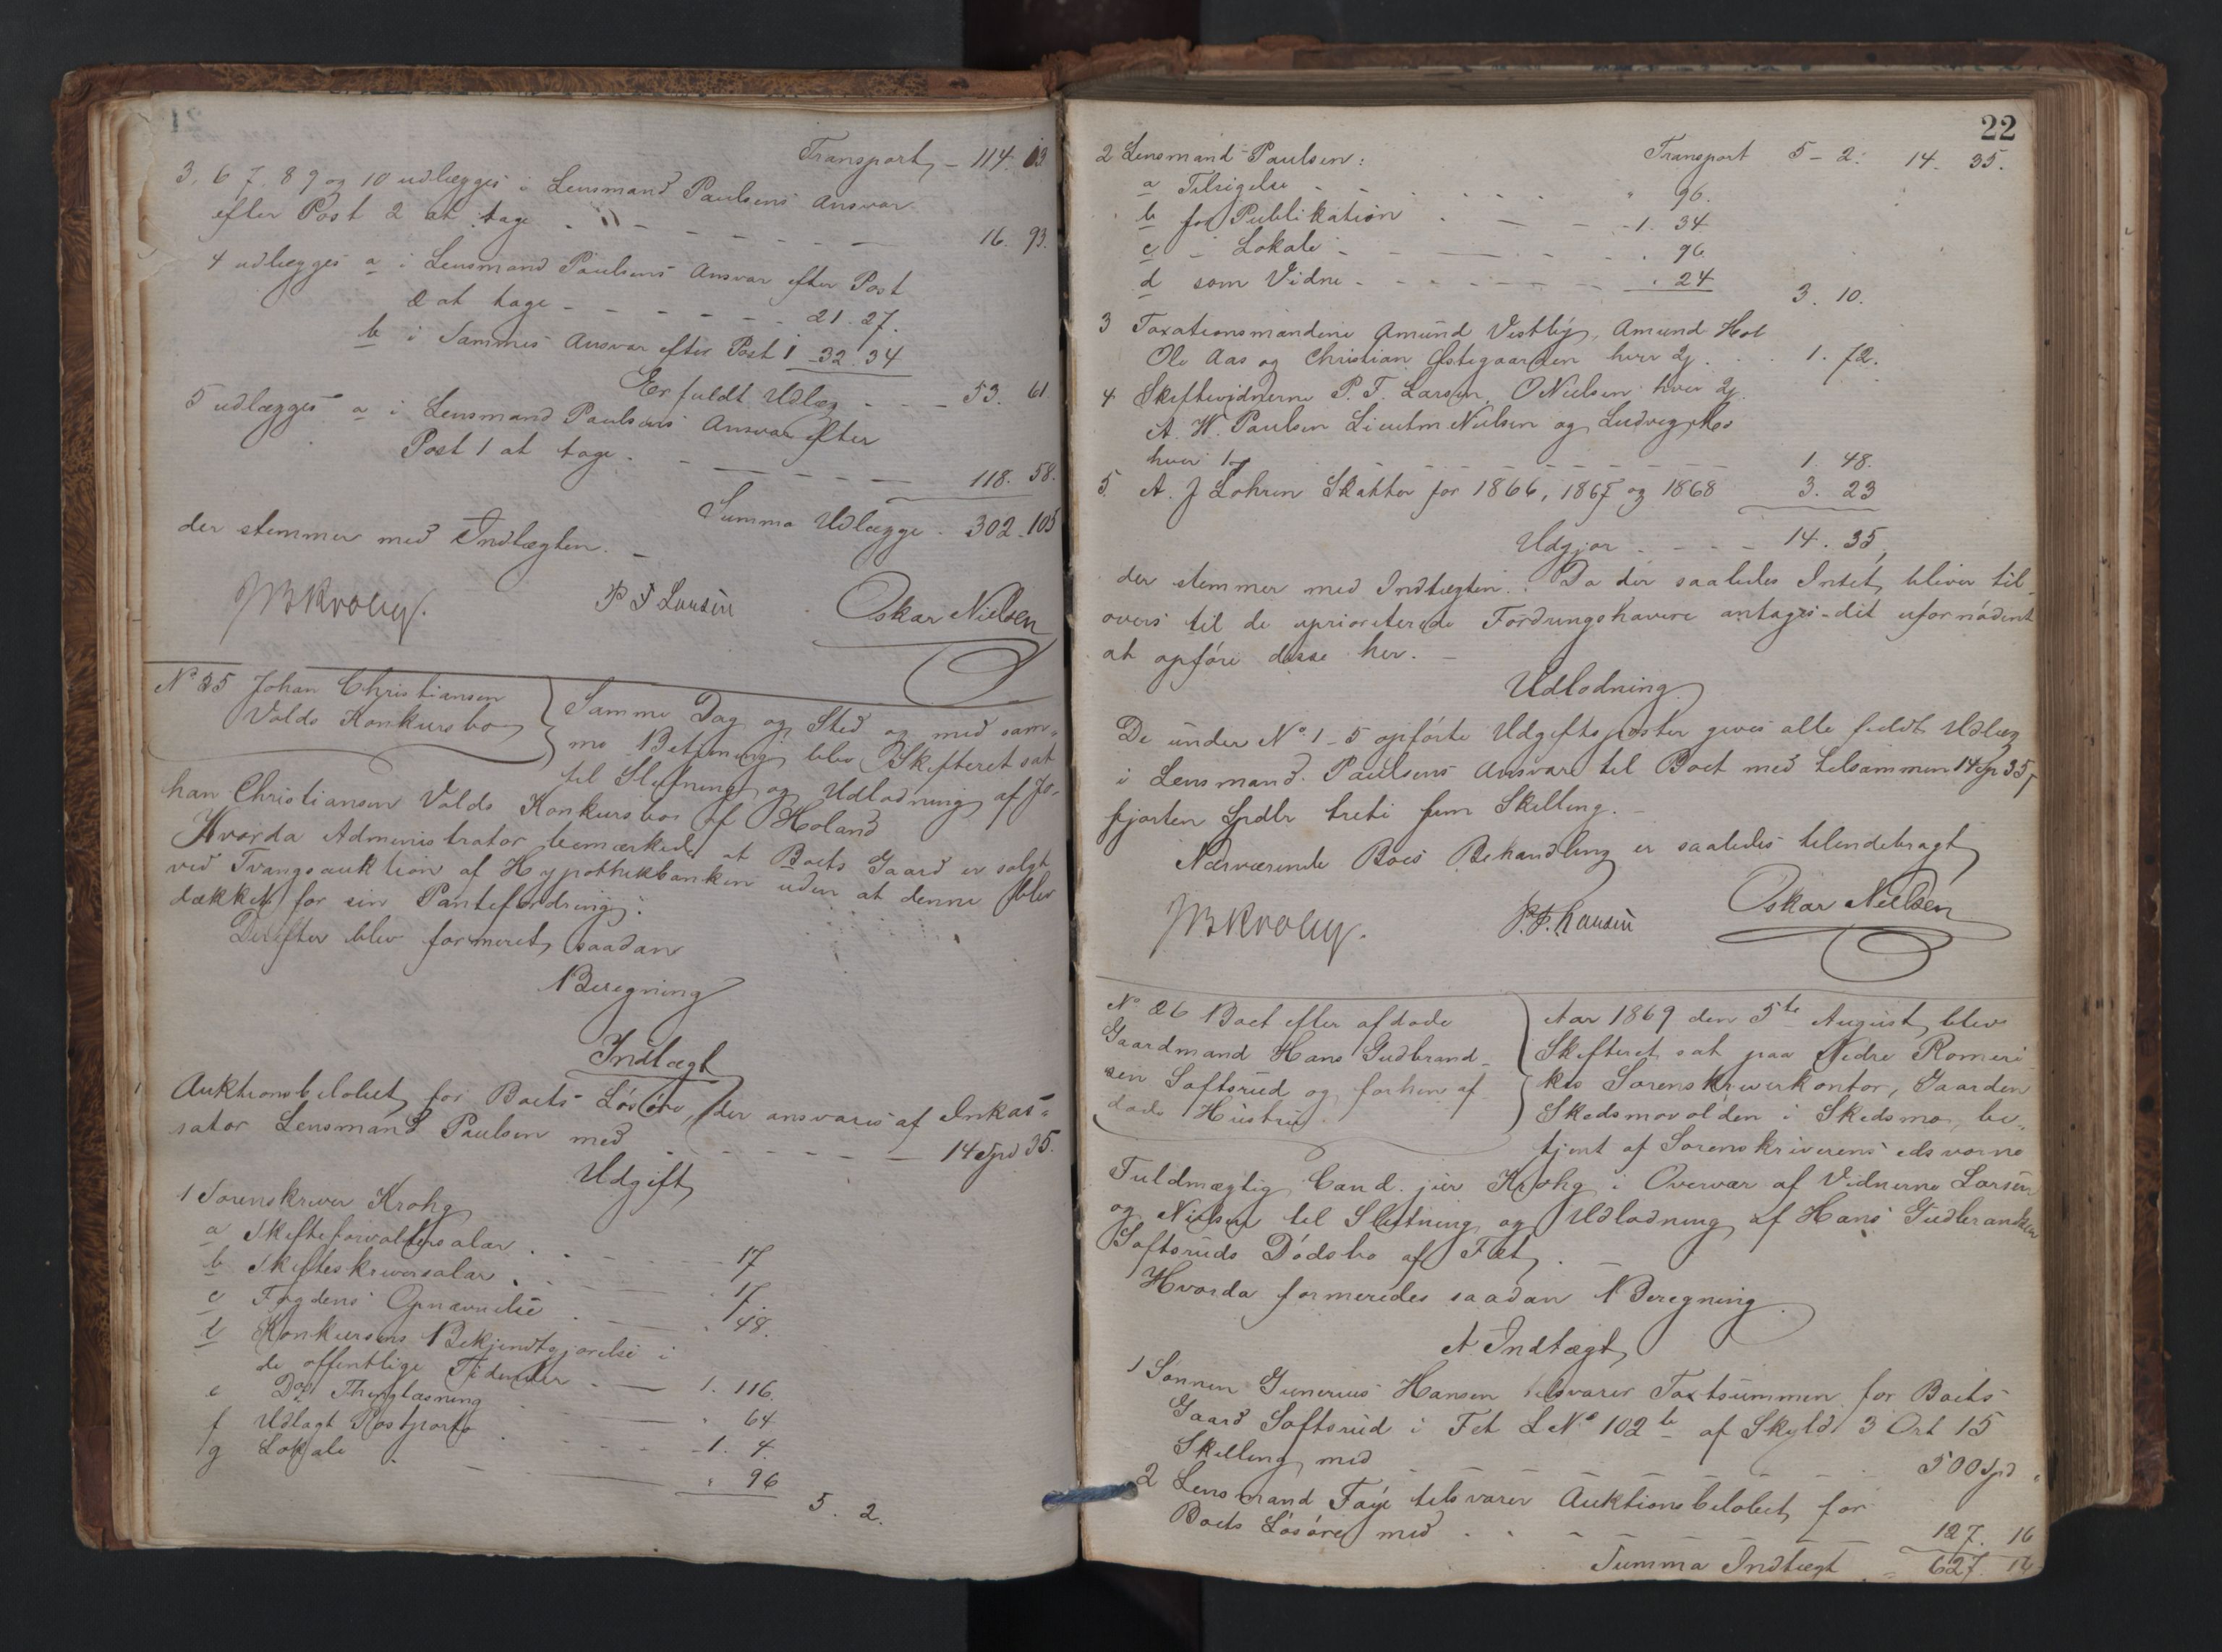 Transport – 114.
3, 6 7, 8 9 og 10 udlægges i Lensmand Paulsens Ansvar
efter Post 2 at tage . " – – – – – – – 16. 93.
4 udlægges a i Lensmand Paulsens Ansvar efter Post
2 at tage – – – – – – – 21. 27.
b i Sammes Ansvar efter Post 1 – 32. 34
Er fuldt Udlæg – – – 53. 61
5 udlægges a i Lensmand Paulsens Ansvar efter
Post 1 at tage . – – – – – – 118. 58.
Summa Udlægge . 302 . 105
der stemmer med Indtægten. –
P F Larsen Oskar Nielsen
No 25 Johan Christiansen
Volds Konkursbo
Samme Dag og Sted og med sam-
me Betjening blev Skifteret sat
til Slutning og Udlodning af Jo-
han Christiansen Volds Konkursbo af Høland
Hvorda Administrator bemærkede at Boets Gaard er solgt
ved Tvangsauktion af Hypothekbanken uden at denne blev
dækket for sin Pantefordring.
Derefter blev formeret saadan
Beregning
Indtægt
1 Auktionsbeløbet for Boets Løsøre, der ansvares af Inkas-
sator Lensmand Paulsen med . – – – – – 14 Spd 35.
Udgift
1 Sorenskriver Krohg
a Skifteforvaltersalær . . – – – 17
b Skifteskriversalær . . – – – . 17.
c Fogdens Opnævnelse . – – . 48.
d Konkursens Bekjendtgjørelse i
de offentlige Tidender . – – 1. 116.
e Do Thinglæsning . – – . 64
f Udlagt Postporto . – – – – 1. 4.
g Lokale . – – – . 96
5. 2.
22
2 Lensmand Paulsen: Transport 5 – 2. 14. 35.
a Tilsigelse – – . . . . " 96.
b for Publikation . – – – 1. 34
c – Lokale – – – – . . 96.
d som Vidne . – – – – – – . 24 3. 10.
3 Taxationsmændene Amund Vestby, Amund Hol
Ole Aas og Christian Østegaarden hver 2/ . . . 1. 72.
4 Skiftevidnerne P. F. Larsen, O Nielsen hver 2/
A. W. Paulsen Lieutn Nielsen og Ludvig
hver 1/ – – – – – – – – 1. 48.
5. A. J Lohren Skatter for 1866, 1867 og 1868 3. 23
Udgjør . – – – 14. 35,
der stemmer med Indtægten. Da der saaledes Intet bliver til-
overs til de uprioriterede Fordringshavere antages det ufornødent
at opføre disse her. –
Udlodning
De under No. 1 – 5 opførte Udgiftsposter gives alle fuldt Udlæg
i Lensmand Paulsens Ansvar til Boet med tilsammen 14 Sp 35/
fjorten Spdlr treti fem Skilling. –
Nærværende Boes Behandling er saaledes tilendebragt
P. F. Larsen Oskar Nielsen
No 26 Boet efter afdøde
Gaardmand Hans Gudbrand-
sen Softsrud og forhen af
døde Hustru.
Aar 1869 den 5te August blev
Skifteret sat paa Nedre Romeri
kes Sorenskriverkontor, Gaarden
Skedsmovolden i Skedsmo, be-
tjent af Sorenskriverens edsvorne
Fuldmægtig Cand. jur Krohg i Overvær af Vidnerne Larsen
og Nielsen til Slutning og Udlodning af Hans Gudbrandsen
Softsruds Dødsbo af Fet. –
Hvorda formeredes saadan Beregning.
A. Indtægt
1 Sønnen Gunerius Hansen tilsvarer Taxtsummen for Boets
Gaard Softsrud i Fet L No 102 b af Skyld 3 Ort 15
Skilling med – – – – – – – – . 500 Spd "
2 Lensmand Faye tilsvarer Auktionsbeløbet for
Boets Løsøre med . . – – – – – – 127. 16
Summa Indtægt . – 627. 16